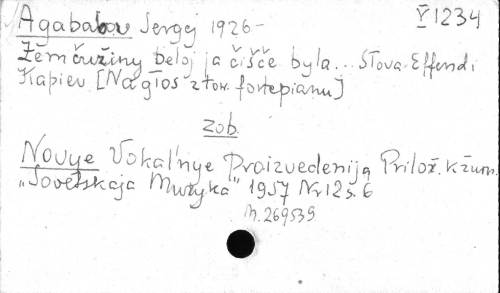 Agababov Sergej 1926- V 1234
Žemčužiny beloj ja čišče byla... Słova Effendi
Kapiev [Na głos z tow. fortepianu]
zob.
Novye Vokal'nye Proizvedenija Prilož. k žurn.
"Sovetskaja Muzyka" 1957 Nr 12 s. 6
M. 269539